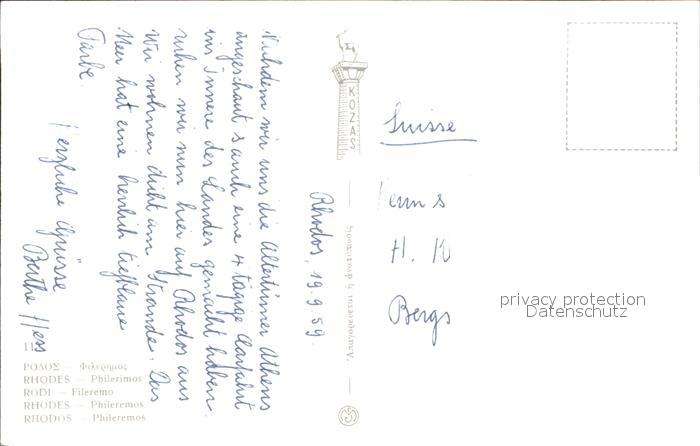 Rhodos, 19.9.59.
Nachdem wir uns die Altertümer Athens
angeschaut & auch eine 4 tägige Carfahrt
ins Innere des Landes gemacht haben.
ruhen wir nun hier auf Rhodos aus
Wir wohnen dicht am Strande. Das
Meer hat eine herrlich tiefblaue
Farbe.
Herzliche Grüsse
Berthe Hess
KOZAS
Ἀπαγορεύεται ἡ ἀνατύπωσις
Suisse
H. K
Bergs
privacy protection
Datenschutz
11
ΡΟΔΟΣ — Φιλέρημος
RHODES — Philerimos
RODI — Fileremo
RHODES — Phileremos
RHODOS — Phileremos